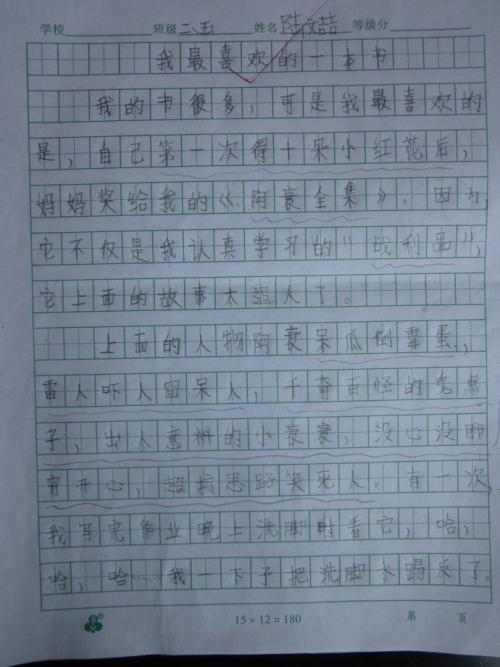 学校 班级 二、五 姓名 陆文喆 等级分
我最喜欢的一本书
我的书很多，可是我最喜欢的
是，自己第一次得十朵小红花后，
妈妈奖给我的《阿衰全集》。因为，
它不仅是我认真学习的“战利品”，
它上面的故事太逗人了。
上面的人物阿衰呆瓜倒霉蛋，
雷人吓人囧呆人，千奇百怪的鬼点
子，出人意料的小衰衰，没心没肺
穷开心，超搞思路笑死人。有一次，
我写完作业晚上洗脚时看它，哈，
哈，哈……我一下子把洗脚水踢反了。
15×12=180 第 页